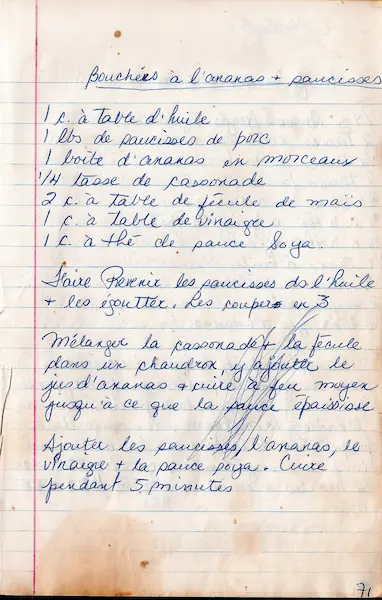 Bouchées à l'ananas + saucisses
1 c. à table d'huile
1 lbs de saucisses de porc
1 boîte d'ananas en morceaux
1/4 tasse de cassonade
2 c. à table de fécule de maïs
1 c. à table de vinaigre
1 c. à thé de sauce Soya.
Faire Revenir les saucisses ds l'huile
+ les égoutter. Les couper en 3
Mélanger la cassonade + la fécule
dans un chaudron, y ajouter le
jus d'ananas + cuire à feu moyen
jusqu'à ce que la sauce épaississe
Ajouter les saucisses, l'ananas, le
vinaigre + la sauce soya. Cuire
pendant 5 minutes
71